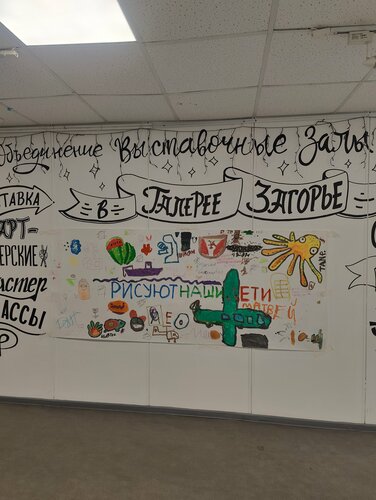 объединение Выставочные Залы
ТАВКА
В ГАЛЕРЕЕ ЗАГОРЬЕ
АРТ-
ЕРСКИЕ
астер
АССЫ
РИСУЮТ НАШИ ЕТИ
МАТВЕЙ